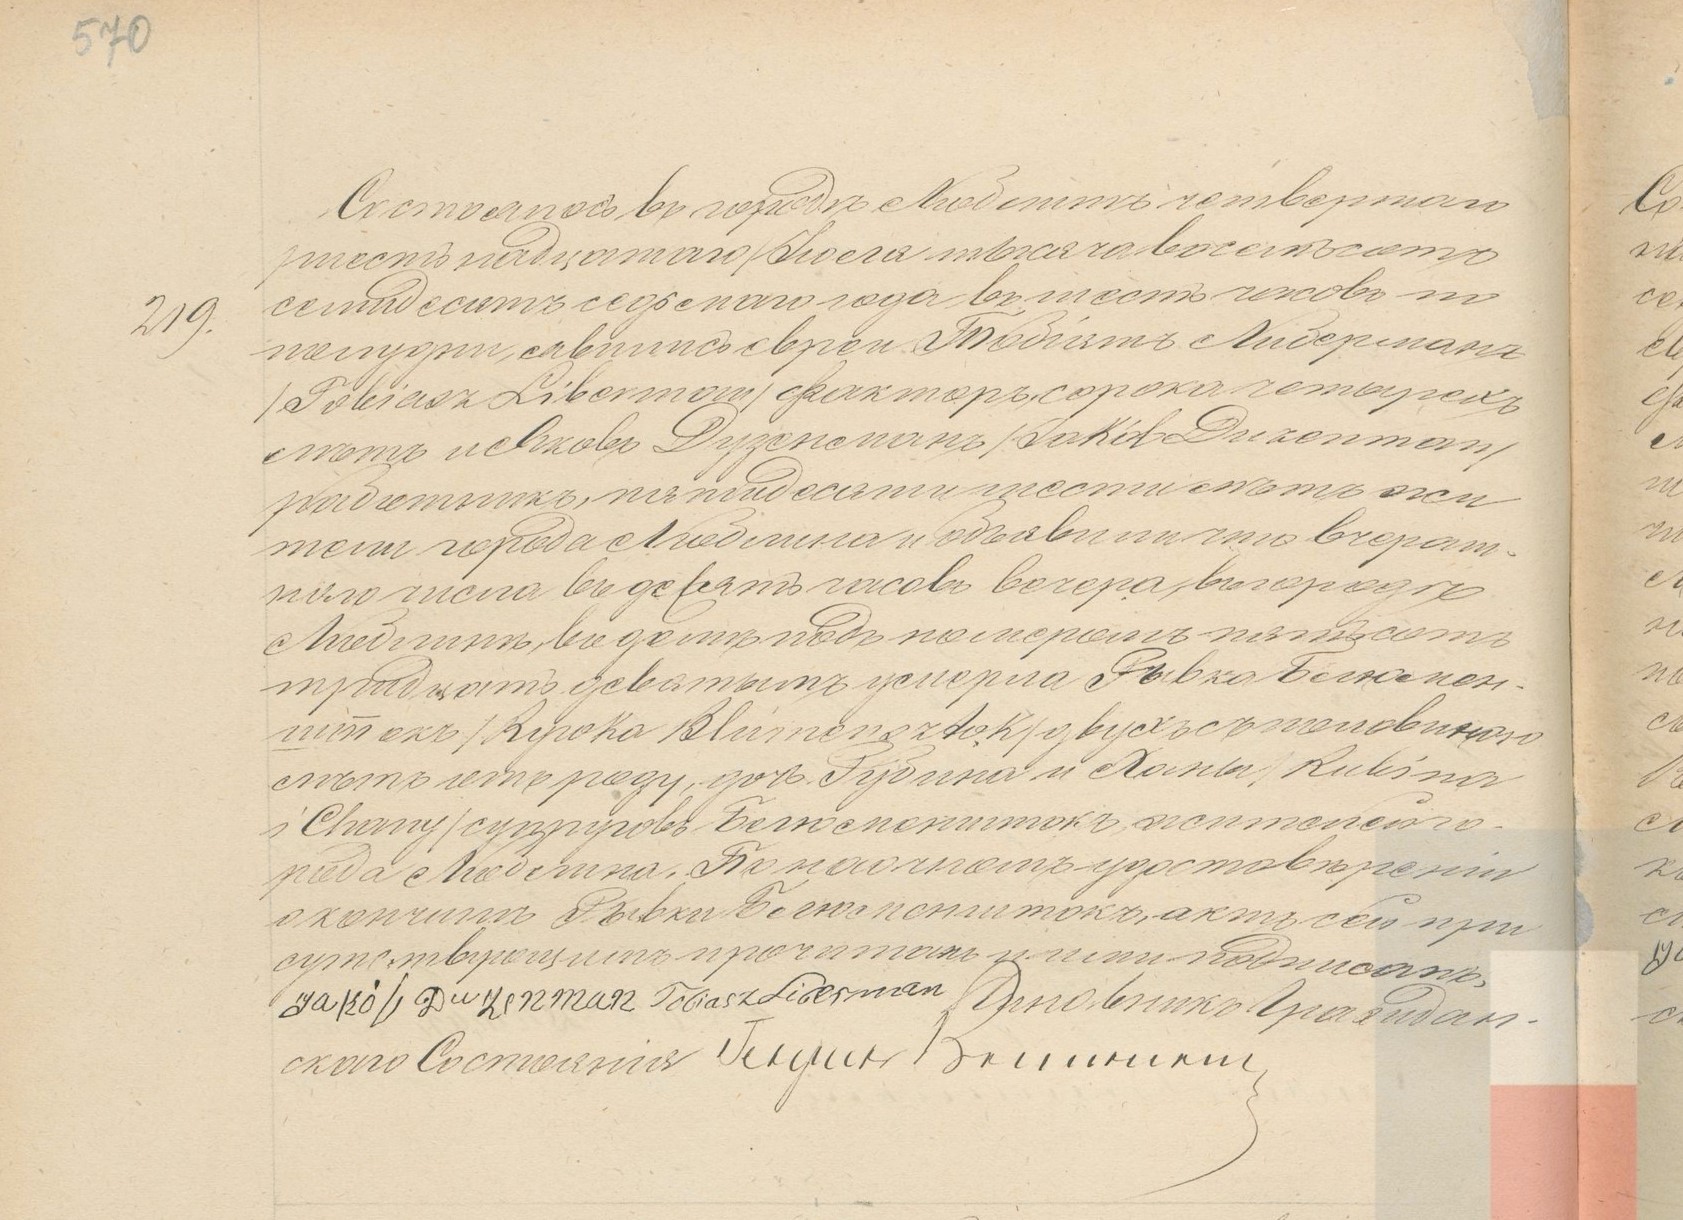 570
Состоялось въ городѣ Люблинѣ четвертаго
/шестнадцатаго/ Іюля мѣсяца восемьсотъ
219.
семидесятъ седьмаго года въ шесть часовъ по
полудни, явились евреи Тобіяшъ Либерманъ
/Tobiasz Liberman/ факторъ, сорока четырехъ
лѣтъ и Яковъ Дузенманъ /Jakób Duzenman/
работникъ, пятидесяти шести лѣтъ жи
тели города Люблина и объявили что вчераш-
няго числа въ девять часовъ вечера, въ городѣ
Люблинѣ, въ домѣ подъ номеромъ пятьсотъ
тридцать девятымъ умерла Рывка Блюмен-
штокъ /Rywka Blumensztok/ двухъ съ половиною
лѣтъ отъ роду, дочь Рубина и Ханы /Rubina
i Chany/ супруговъ Блюменштокъ, жителей го-
рода Люблина. По наочномъ удостовѣреніи
о кончинѣ Рывки Блюменштокъ, актъ сей при
сутствующимъ прочитанъ и ими подписанъ.
Jakób Duzenman Tobiasz Liberman Чиновникъ Граждан-
скаго Состоянія